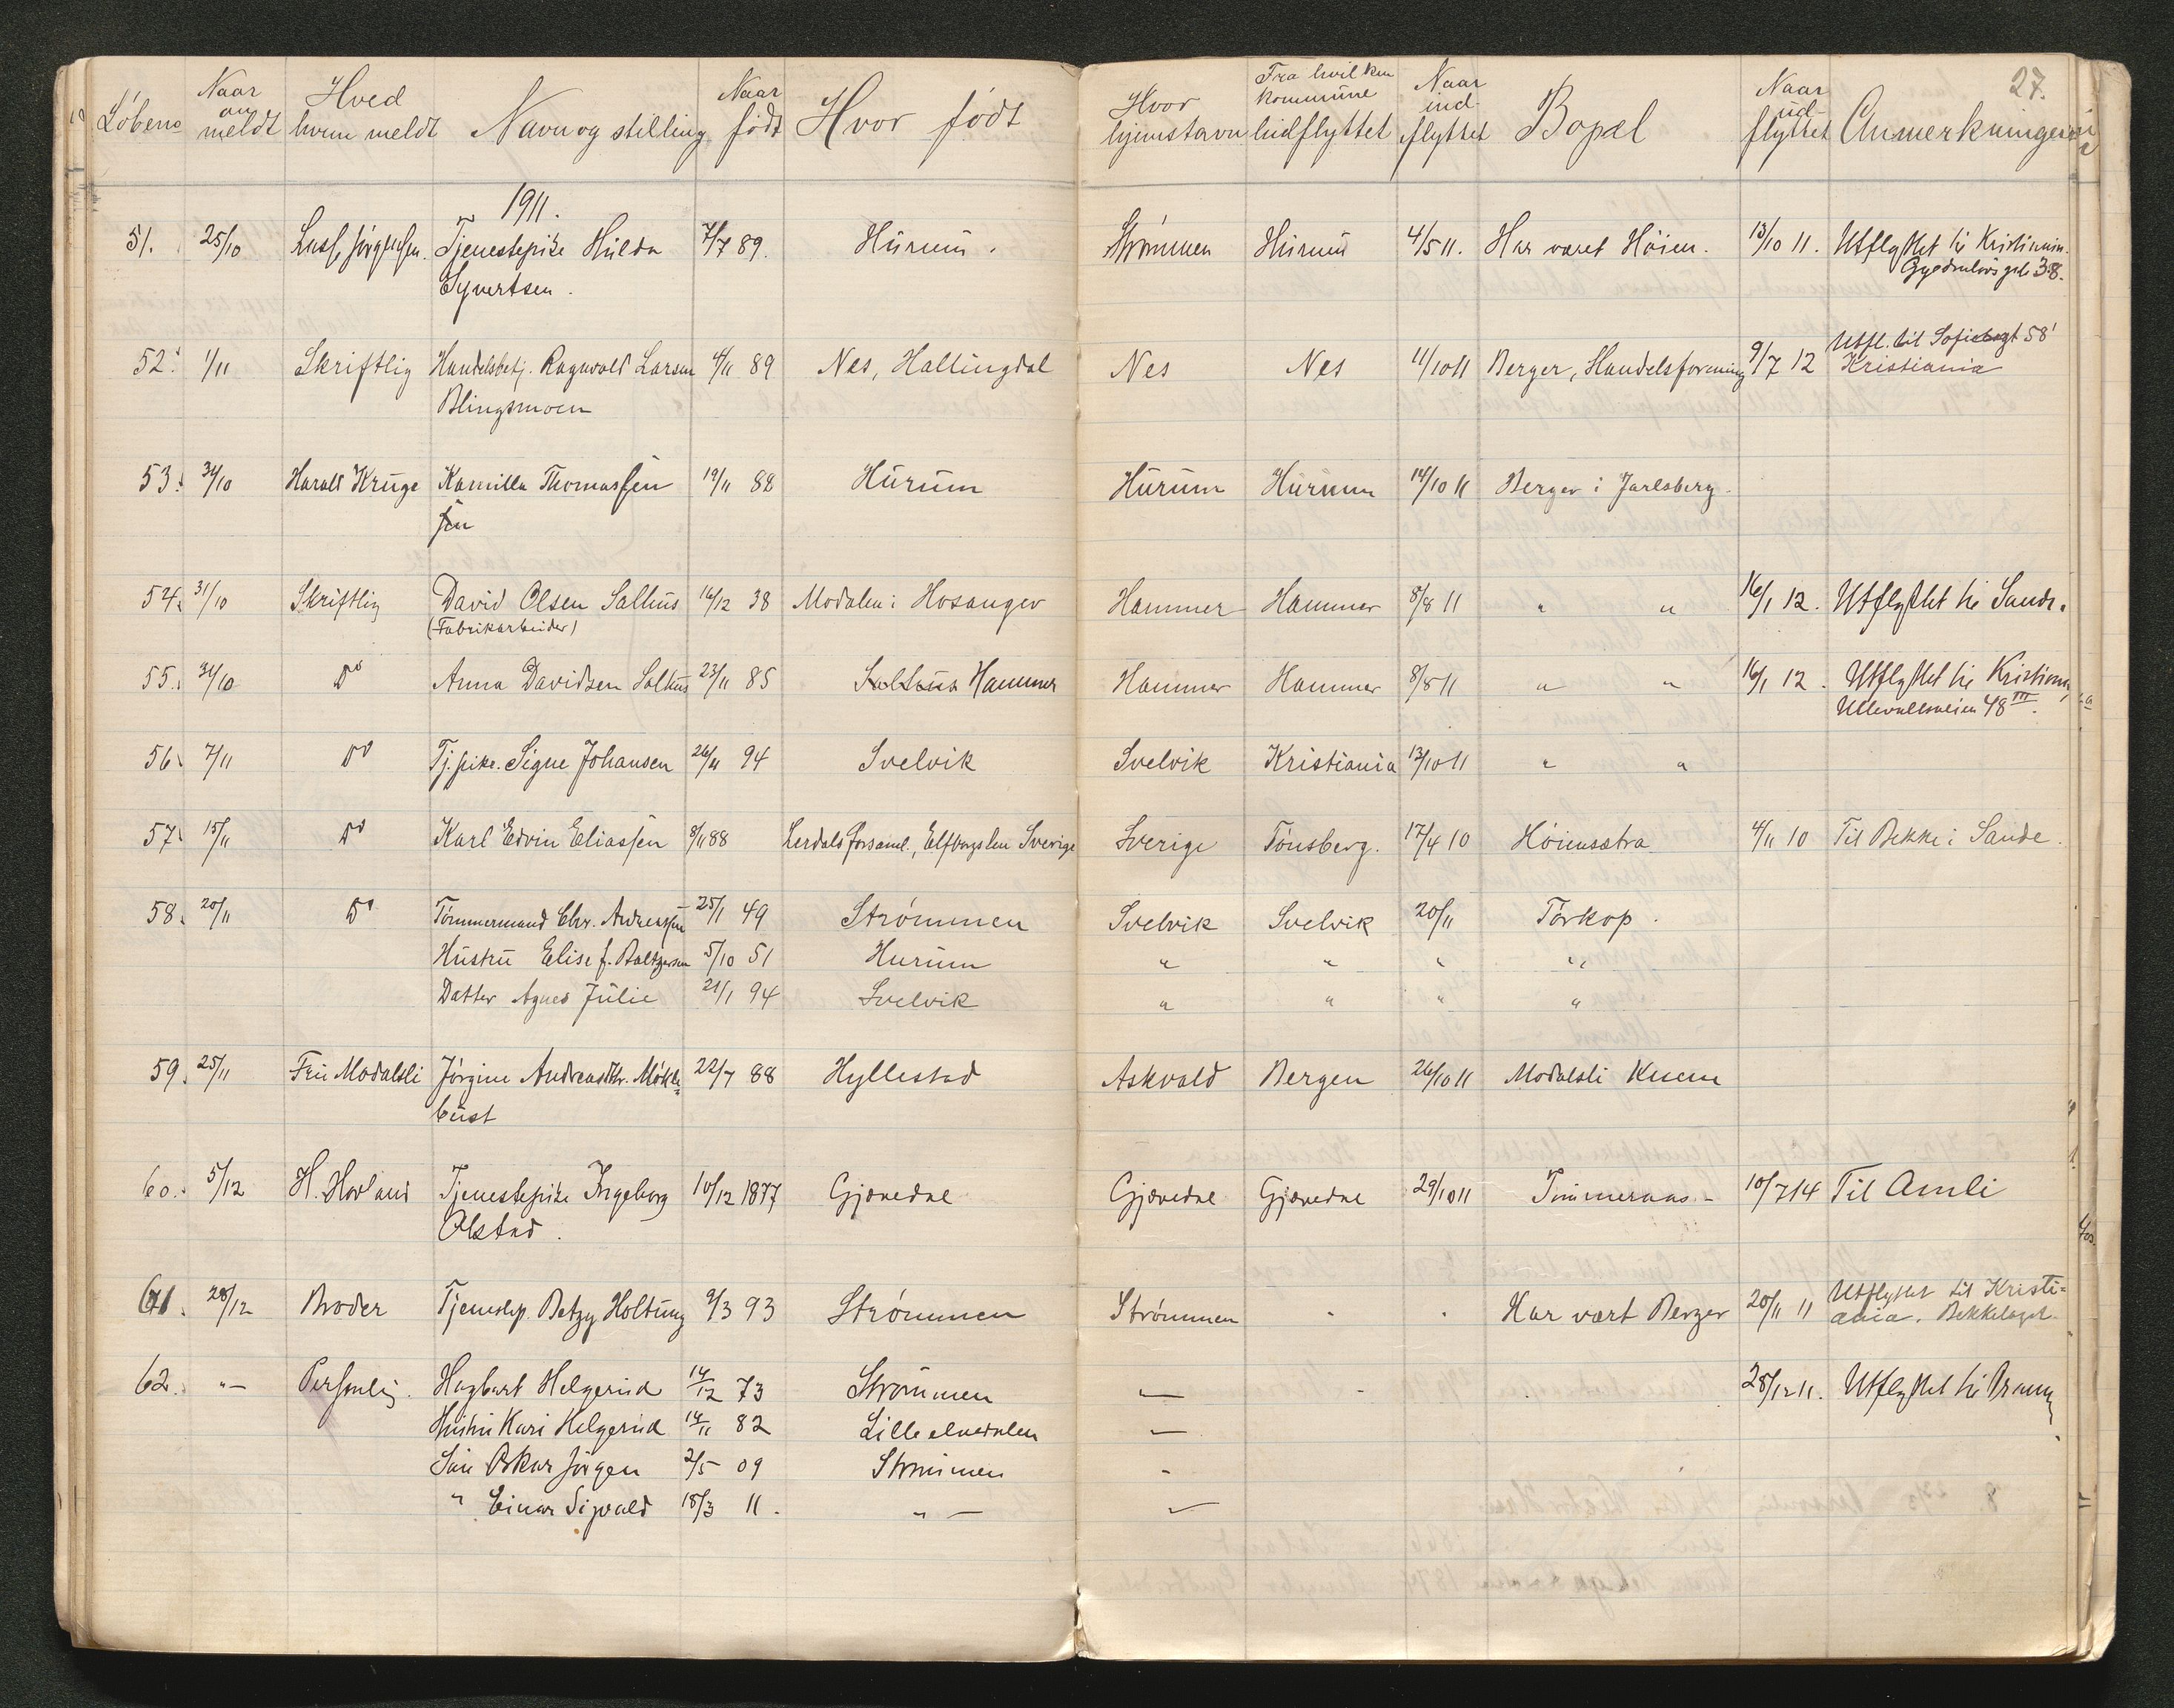 27.
Løbene Naar an meldt Hved hvem meldt Navn og stilling Naar født Hvor født Hvor hjemstavn Fra hvilken kommune indflyttet Naar ind- flyttet Bopæl Naar ud- flyttet Anmerkninger
1911.
51. 25/10 Tjenestepike Hulda 7/7 89. Hurum. Strømmen Hurum 4/5 11. Har været Høien. 13/10 11. Utflyttet til Kristiania.
Syvertsen. 38.
52. 1/11 Skriftlig Handelsbetj. Ragnvald Larsen 4/11 89 Nes, Hallingdal Nes Nes 11/10 11 Berger, Handelsforening 9/7 12 Utfl. til Sofiesgt 58
Blingsmoen Kristiania
53. 31/10 Harald Kruge Kamilla Thomassen 19/11 88 Hurum Hurum Hurum 14/10 11 Berger i Jarlsberg.
54. 31/10 Skriftlig David Olsen Salhus 16/12 38 Modalen i Hosanger Hammer Hammer 8/8 11 " " 16/1 12. Utflyttet til Sande.
(Fabrikarbeider)
55. 31/10 Do Anna Davidsen Salhus 23/11 85 Salhus Hammer Hammer Hammer 8/8 11 " " 16/1 12. Utflyttet til Kristiania,
Ullevallsveien 48 III.
56. 7/11 Do Tj.pike. Signe Johansen 26/11 94 Svelvik Svelvik Kristiania 13/10 11 " "
57. 15/11 Do Karl Edvin Eliassen 8/11 88 Lerdals forsaml., Elfborgs len Sverige Sverige Tønsberg. 17/4 10 Høiensætra 4/11 10 Til Bekke i Sande.
58. 20/11 Do Tømmermand Chr. Andreassen 25/1 49 Strømmen Svelvik Svelvik 20/11 Tørkop.
Hustru Elise f. Baltzersen 5/10 51 Hurum " " " "
Datter Agnes Julie 21/1 94 Svelvik " " " "
59. 25/11 Fru Modalsli Jørgine Andreasdtr. Mökle= 22/7 88 Hyllestad Askvold Bergen 26/10 11 Modalsli Knem
bust
60. 5/12 H. Hovland Tjenestepike Ingeborg 10/12 1877 Gjøvedal Gjøvedal Gjøvedal 29/10 11 Tømmeraas - 10/7 14 Til Amli
Olstad.
61. 28/12 Broder Tjenestep. Betzy Holtung 9/3 93 Strømmen Strømmen - - Har vært Berger 20/11 11 Utflyttet til Kristi=
ania. Bekkelaget.
62. "- Personlig. Hagbart Helgerud 14/12 73 Strømmen — - . 28/12 11. Utflyttet til
Hustru Kari Helgerud 14/11 82 Lilleelvedalen —
Søn Oskar Jörgen 2/5 09 Strømmen -
" Einar Sigvald 18/3 11. " — —